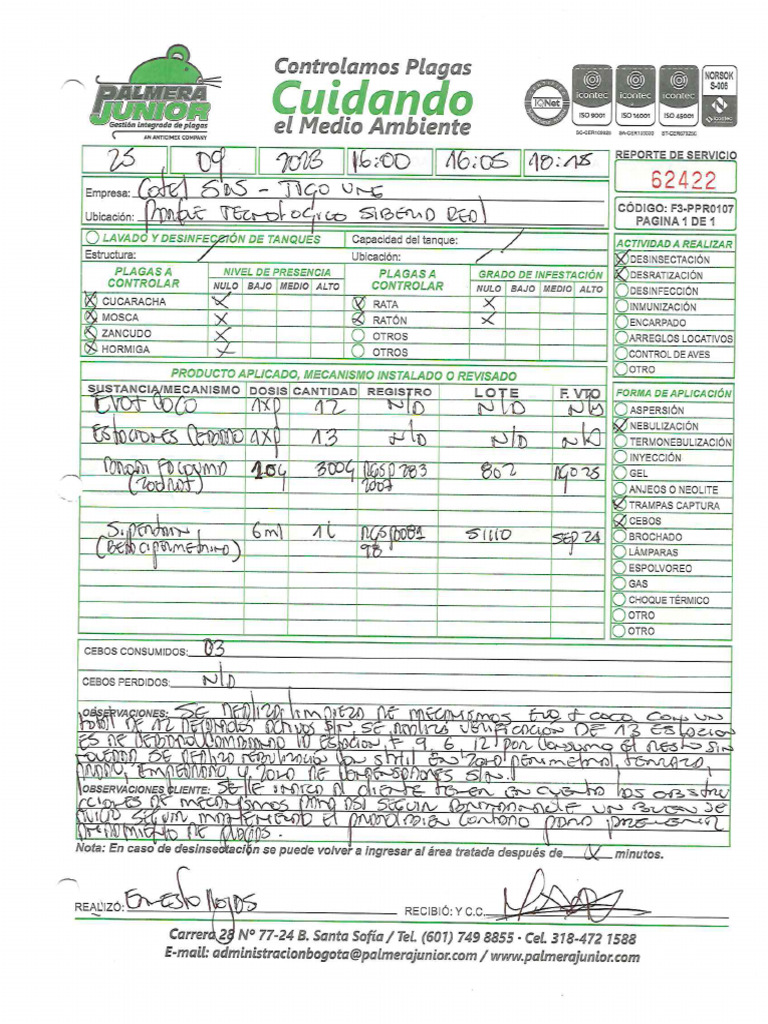 Controlamos Plagas
Cuidando
el Medio Ambiente
PALMERA
JUNIOR
Gestión integrada de plagas
AN ANTICIMEX COMPANY
IQNet
icontec
ISO 9001
icontec
ISO 14001
icontec
ISO 45001
NORSOK
S-006
icontec
25 09 2023 16:00 16:05 18:15
REPORTE DE SERVICIO
62422
Empresa: Cotel SAS - TIGO UNE
Ubicación: PARQUE TECNOLOGICO SIBERIA REAL
CÓDIGO: F3-PPR0107
PAGINA 1 DE 1
LAVADO Y DESINFECCIÓN DE TANQUES Capacidad del tanque:
Estructura: Ubicación:
PLAGAS A CONTROLAR NIVEL DE PRESENCIA PLAGAS A CONTROLAR GRADO DE INFESTACIÓN
NULO BAJO MEDIO ALTO NULO BAJO MEDIO ALTO
X CUCARACHA X X RATA X
X MOSCA X X RATÓN X
X ZANCUDO X OTROS
X HORMIGA X OTROS
ACTIVIDAD A REALIZAR
X DESINSECTACIÓN
X DESRATIZACIÓN
DESINFECCIÓN
INMUNIZACIÓN
ENCARPADO
ARREGLOS LOCATIVOS
CONTROL DE AVES
OTRO
PRODUCTO APLICADO, MECANISMO INSTALADO O REVISADO
SUSTANCIA/MECANISMO DOSIS CANTIDAD REGISTRO LOTE F. VTO
EVO + COCO 1XP 12 N/D N/D N/D
ESTACIONES 1XP 13 N/D N/D N/D
10g 300g RGSP283 802 AGO 25
2007
6ml 1L
98 SEP 24
FORMA DE APLICACIÓN
ASPERSIÓN
X NEBULIZACIÓN
TERMONEBULIZACIÓN
INYECCIÓN
GEL
ANJEOS O NEOLITE
X TRAMPAS CAPTURA
X CEBOS
BROCHADO
LÁMPARAS
ESPOLVOREO
GAS
CHOQUE TÉRMICO
OTRO
OTRO
CEBOS CONSUMIDOS: 03
CEBOS PERDIDOS: N/D
OBSERVACIONES: SE REALIZA LIMPIEZA DE MECANISMOS EVO + COCO CON UN
TOTAL DE 12 ACTIVOS SE REALIZA VERIFICACION DE 13 ESTACION
ES DE 9, 6, 12 POR CONSUMO EL RESTO SIN
SE REALIZO NEBULIZACION CON EN ZONA PERIMETRAL, TERRAZA,
Y ZONA DE CONDENSADORES
OBSERVACIONES CLIENTE: SE LE INDICA AL CLIENTE TENER EN CUENTA LOS OBSTRU
CCIONES DE MECANISMOS PARA ASI SEGUIR UN BUEN SE
SEGUIR MANTENIENDO EL PARA PREVENIR
DE PLAGAS.
Nota: En caso de desinsectación se puede volver a ingresar al área tratada después de minutos.
REALIZÓ: Ernesto Rojas RECIBIÓ: Y C.C.
Carrera 28 N° 77-24 B. Santa Sofía / Tel. (601) 749 8855 · Cel. 318-472 1588
E-mail: administracionbogota@palmerajunior.com / www.palmerajunior.com